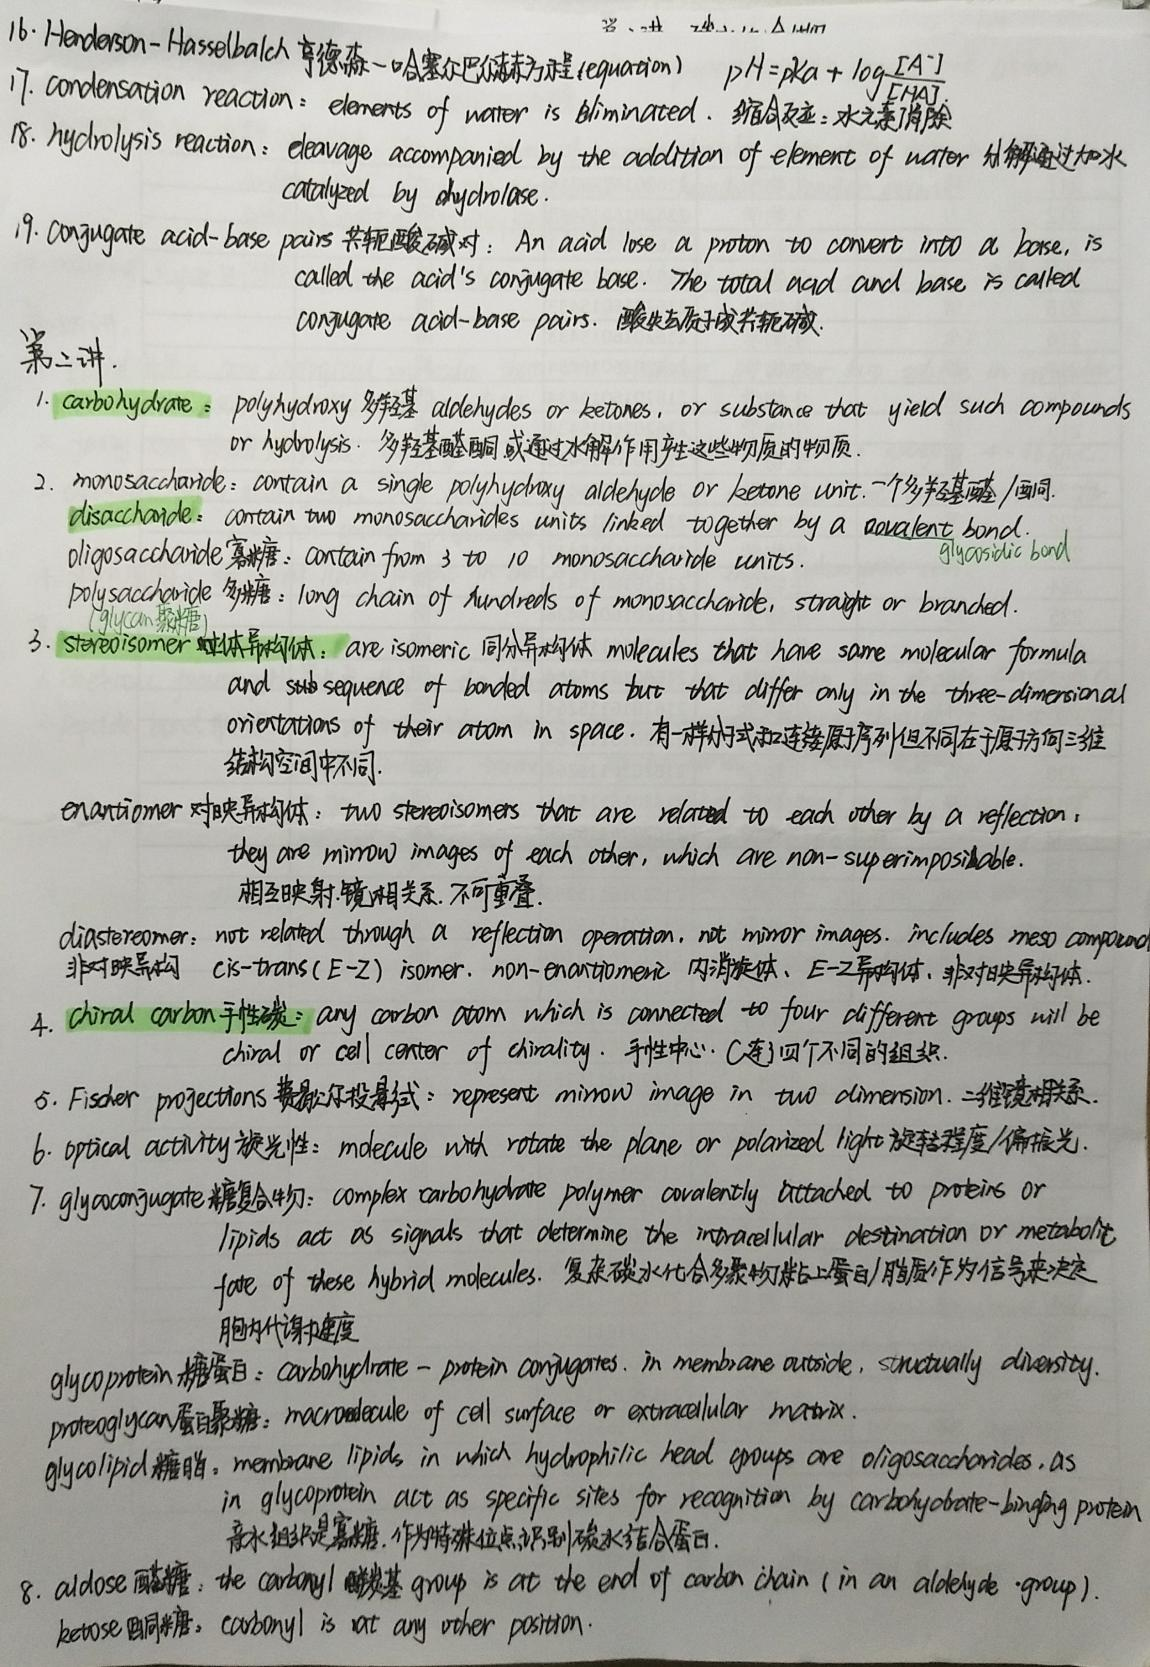 16. Henderson-Hasselbalch 亨德森一哈塞尔巴尔赫方程(equation) pH=pKa+log[A⁻]/[HA].
17. condensation reaction: elements of water is eliminated. 缩合反应:水元素消除
18. hydrolysis reaction: cleavage accompanied by the addition of element of water 分解通过加水
catalyzed by hydrolase.
19. conjugate acid-base pairs 共轭酸碱对: An acid lose a proton to convert into a base, is
called the acid's conjugate base. The total acid and base is called
conjugate acid-base pairs. 酸失去质子成共轭碱.
第二讲.
1. carbohydrate: polyhydroxy 多羟基 aldehydes or ketones, or substance that yield such compounds
or hydrolysis. 多羟基醛酮或通过水解作用产生这些物质的物质.
2. monosaccharide: contain a single polyhydroxy aldehyde or ketone unit. 一个多羟基醛/酮.
disaccharide: contain two monosaccharides units linked together by a covalent bond.
glycosidic bond
oligosaccharide 寡糖: contain from 3 to 10 monosaccharide units.
polysaccharide 多糖: long chain of hundreds of monosaccharide, straight or branched.
(glycan 聚糖)
3. stereoisomer 立体异构体: are isomeric 同分异构体 molecules that have same molecular formula
and sequence of bonded atoms but that differ only in the three-dimensional
orientations of their atom in space. 有一样分子式和连接原子序列但不同在于原子方向三维
结构空间中不同.
enantiomer 对映异构体: two stereoisomers that are related to each other by a reflection:
they are mirrow images of each other, which are non-superimposibable.
相互映射.镜相关系.不可重叠.
diastereomer: not related through a reflection operation, not mirror images. includes meso compound
非对映异构 cis-trans(E-Z) isomer. non-enantiomeric 内消旋体、E-Z异构体、非对映异构体.
4. chiral carbon 手性碳: any carbon atom which is connected to four different groups will be
chiral or cell center of chirality. 手性中心. C连了四个不同的组织.
5. Fischer projections 费歇尔投影式: represent mirrow image in two dimension. 二维镜相关系.
6. optical activity 旋光性: molecule with rotate the plane or polarized light 旋转程度/偏振光.
7. glycoconjugate 糖复合物: complex carbohydrate polymer covalently attached to proteins or
lipids act as signals that determine the intracellular destination or metabolit
fate of these hybrid molecules. 复杂碳水化合多聚物粘上蛋白/脂质作为信号来决定
胞内代谢速度
glycoprotein 糖蛋白: carbohydrate - protein conjugates. in membrane outside, structually diversity.
proteoglycan 蛋白聚糖: macromolecule of cell surface or extracellular matrix.
glycolipid 糖脂: membrane lipids in which hydrophilic head groups are oligosaccharides, as
in glycoprotein act as specific sites for recognition by carbohydrate-binging protein
亲水组织是寡糖.作为特殊位点识别碳水结合蛋白.
8. aldose 醛糖: the carbonyl 羰基 group is at the end of carbon chain (in an aldehyde group).
ketose 酮糖: carbonyl is at any other position.